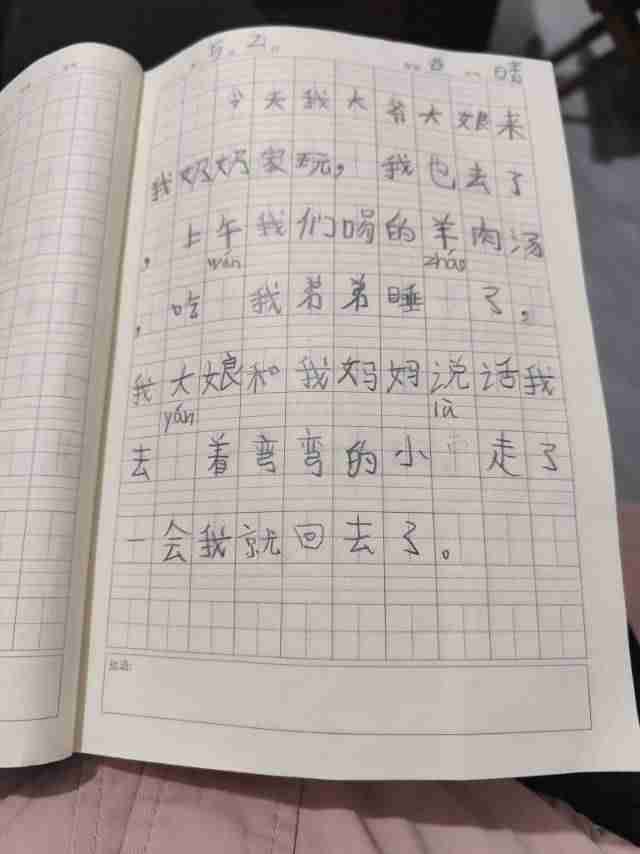 5. 21. 晴
今天我大爷大娘来
我妈妈家玩，我也去了
，上午我们喝的羊肉汤
wán zháo
，吃 我弟弟睡 了，
我大娘和我妈妈说话我
yán lù
去 着弯弯的小 走了
一会我就回去了。